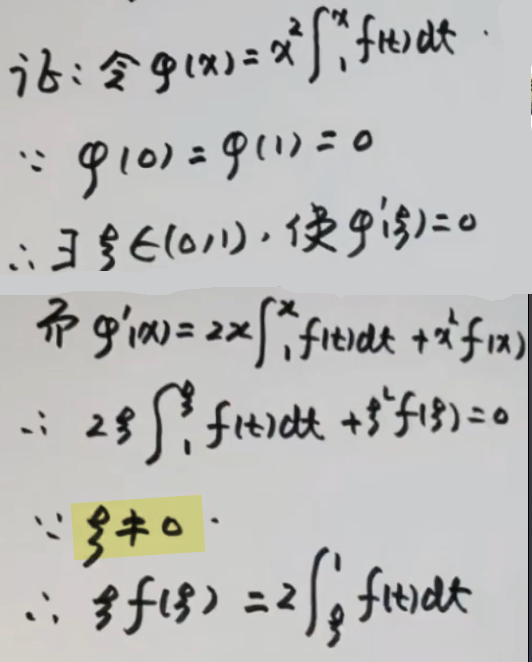 证: 令 φ(x)=x²∫₁ˣf(t)dt.
∵ φ(0)=φ(1)=0
∴∃ ξ∈(0,1), 使φ'(ξ)=0
而 φ'(x)=2x∫₁ˣf(t)dt+x²f(x)
∴ 2ξ∫₁^ξ f(t)dt+ξ²f(ξ)=0
∵ ξ≠0.
∴ ξf(ξ)=2∫_ξ^1 f(t)dt